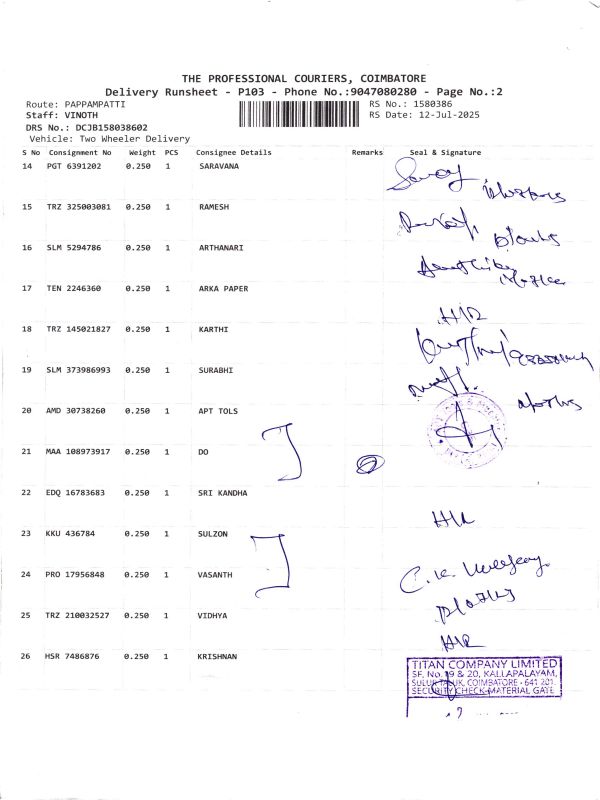 THE PROFESSIONAL COURIERS, COIMBATORE
Delivery Runsheet - P103 - Phone No.:9047080280 - Page No.:2
Route: PAPPAMPATTI RS No.: 1580386
Staff: VINOTH RS Date: 12-Jul-2025
DRS No.: DCJB158038602
Vehicle: Two Wheeler Delivery
S No Consignment No Weight PCS Consignee Details Remarks Seal & Signature
14 PGT 6391202 0.250 1 SARAVANA
15 TRZ 325003081 0.250 1 RAMESH
16 SLM 5294786 0.250 1 ARTHANARI
17 TEN 2246360 0.250 1 ARKA PAPER
18 TRZ 145021827 0.250 1 KARTHI
19 SLM 373986993 0.250 1 SURABHI
20 AMD 30738260 0.250 1 APT TOLS
21 MAA 108973917 0.250 1 DO
22 EDQ 16783683 0.250 1 SRI KANDHA
23 KKU 436784 0.250 1 SULZON
24 PRO 17956848 0.250 1 VASANTH
25 TRZ 210032527 0.250 1 VIDHYA
26 HSR 7486876 0.250 1 KRISHNAN
TITAN COMPANY LIMITED
SF. No. 19 & 20, KALLAPALAYAM,
SULUR TALUK, COIMBATORE - 641 201.
SECURITY CHECK-MATERIAL GATE